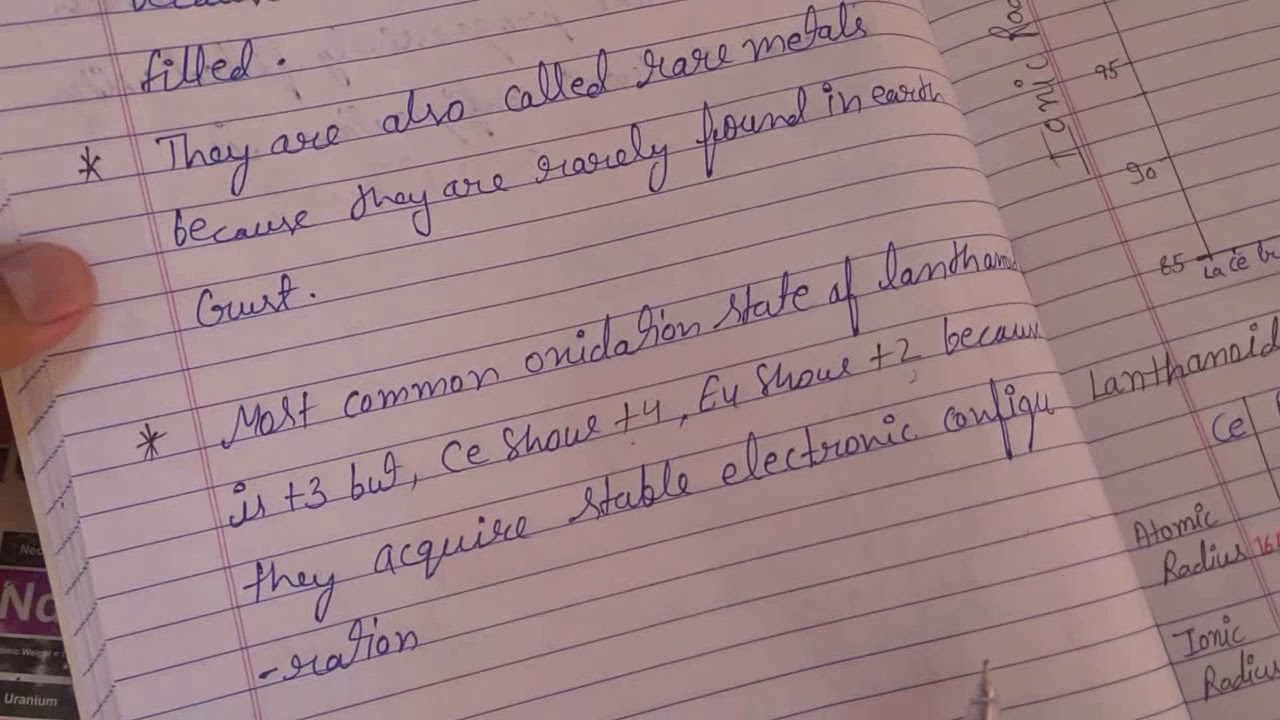 filled.
* They are also called rare metals
because they are rarely found in earth
Crust.
* Most common oxidation state of lanthanoid
is +3 but, Ce show +4, Eu show +2 because
they acquire stable electronic configu
-ration
Ionic
95
90
85
La Ce
Lanthanoid
Ce
Atomic
Radius 161
Ionic
Radius
Uranium